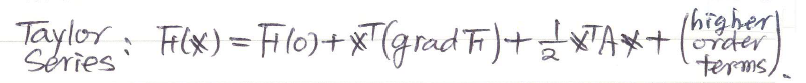 Taylor Series: F(x) = F(0) + xᵀ(grad F) + 1/2 xᵀAx + (higher order terms).